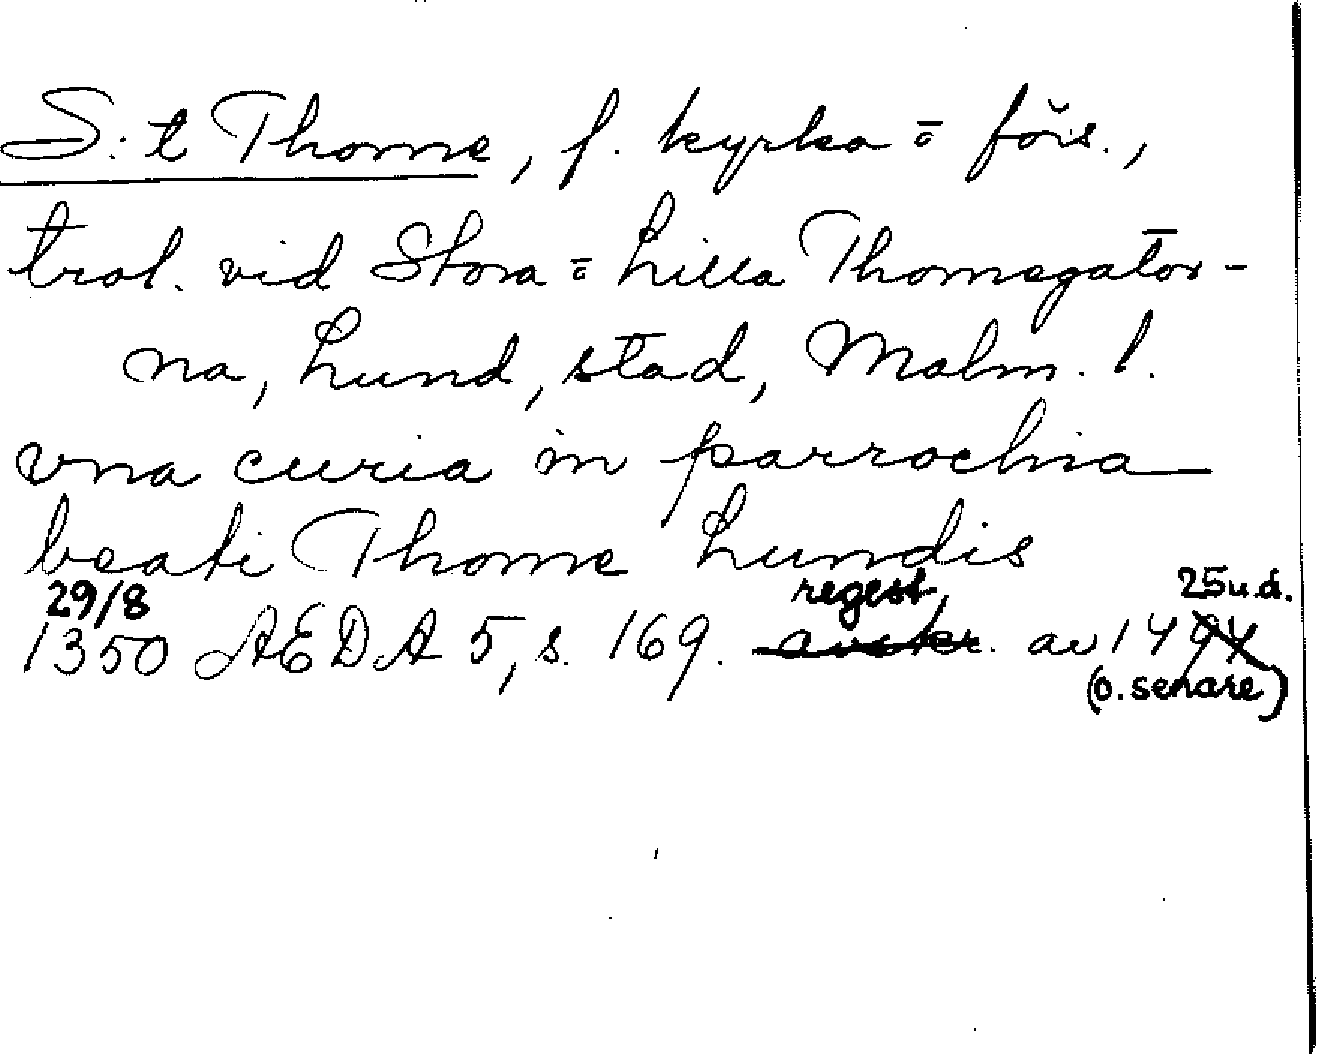 S:t Thome, f. kyrka o förs.,
trol. vid Stora o Lilla Thomegator-
na, Lund, stad, Malm. l.
vna curia in parrochia
beati Thome Lundis
29/8 regest, 25 u.d.
1350 AEDA 5, s. 169. avskr. av 1494
(o. senare)